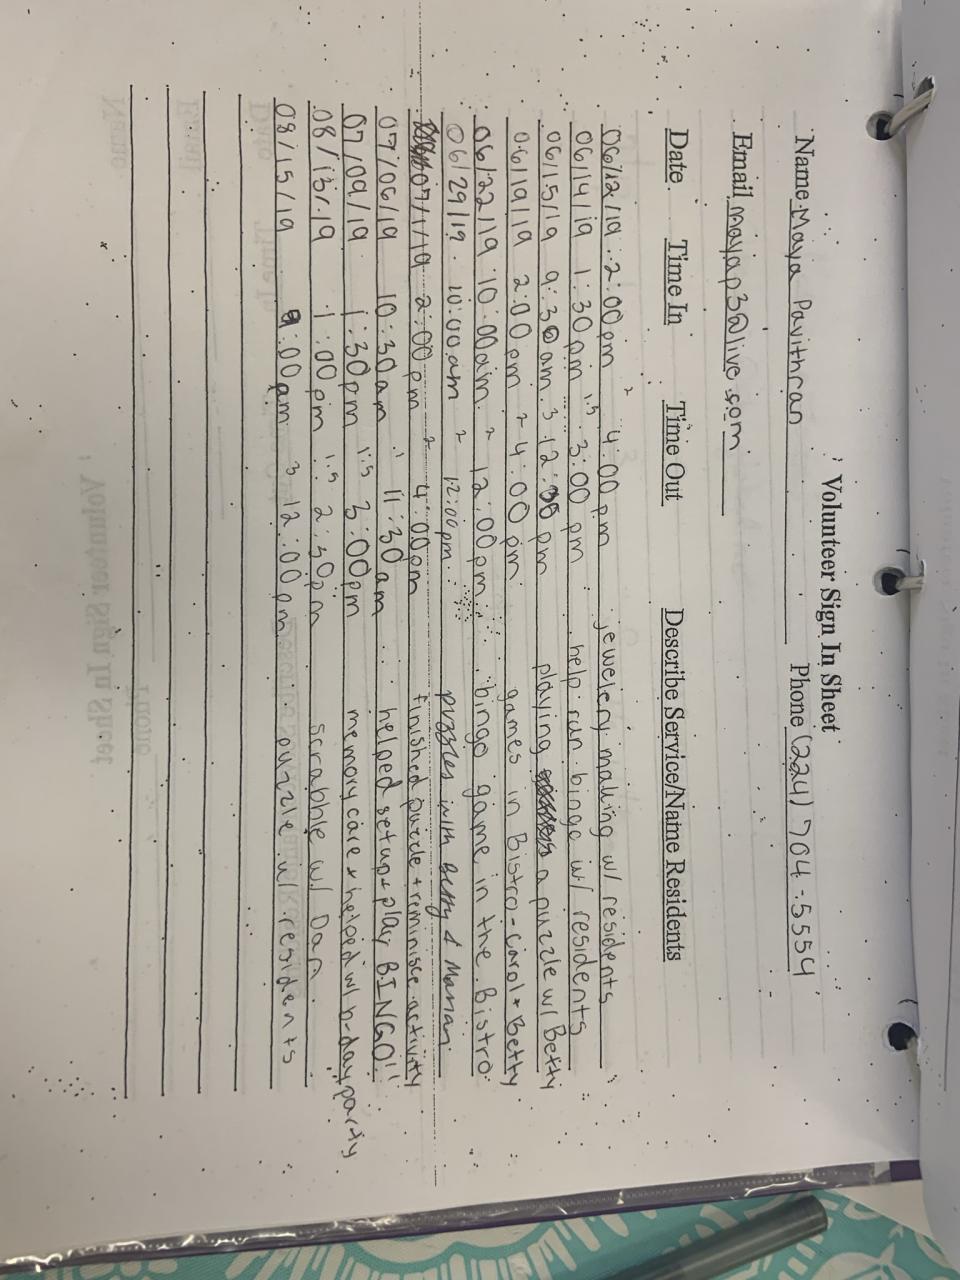 Volunteer Sign In Sheet
Name Maya Pavithran Phone (224) 704-5554
Email mayap3@live.com
Date Time In Time Out Describe Service/Name Residents
06/12/19 2:00pm 2 4:00pm jewelery making w/ residents
06/14/19 1:30pm 1.5 3:00 pm help run bingo w/ residents
06/15/19 9:30am 3 12:30 pm playing a puzzle w/ Betty
06/19/19 2:00pm 2 4:00 pm games in Bistro - Carol + Betty
06/22/19 10:00am 2 12:00pm bingo game in the Bistro
06/29/19 10:00am 2 12:00pm puzzles with Betty & Marian
07/1/19 2:00pm 2 4:00pm finished puzzle + reminisce activity
07/06/19 10:30am 1 11:30am helped setup + play BINGO!!
07/09/19 1:30pm 1.5 3:00pm memory care + helped w/ b-day party
08/13/19 1:00pm 1.5 2:30pm scrabble w/ Dan
08/15/19 9:00am 3 12:00pm puzzle w/ residents